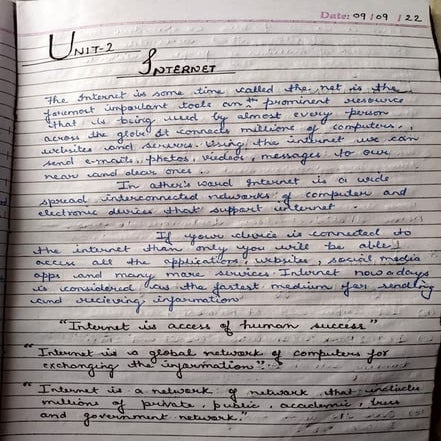 Date: 09/09/22
UNIT-2
INTERNET
The Internet is some time called the net, is the
foremost important tools and prominent resource
that is being used by almost every person
across the globe. It connects millions of computers,
websites and servers. Using the internet we can
send e-mails, photos, videos, messages to our
near and dear ones.
In other's word Internet is a wide
spread interconnected networks of computer and
electronic devices that support internet.
If your device is connected to
the internet than only you will be able
access all the applications, websites, social media
apps and many more services. Internet now a days
is considered as the fastest medium for sending
and recieving information
"Internet is access of human success"
"Internet is a global network of computers for
exchanging the information".
"Internet is a network of network that include
millions of private, public, academic,
and government network."